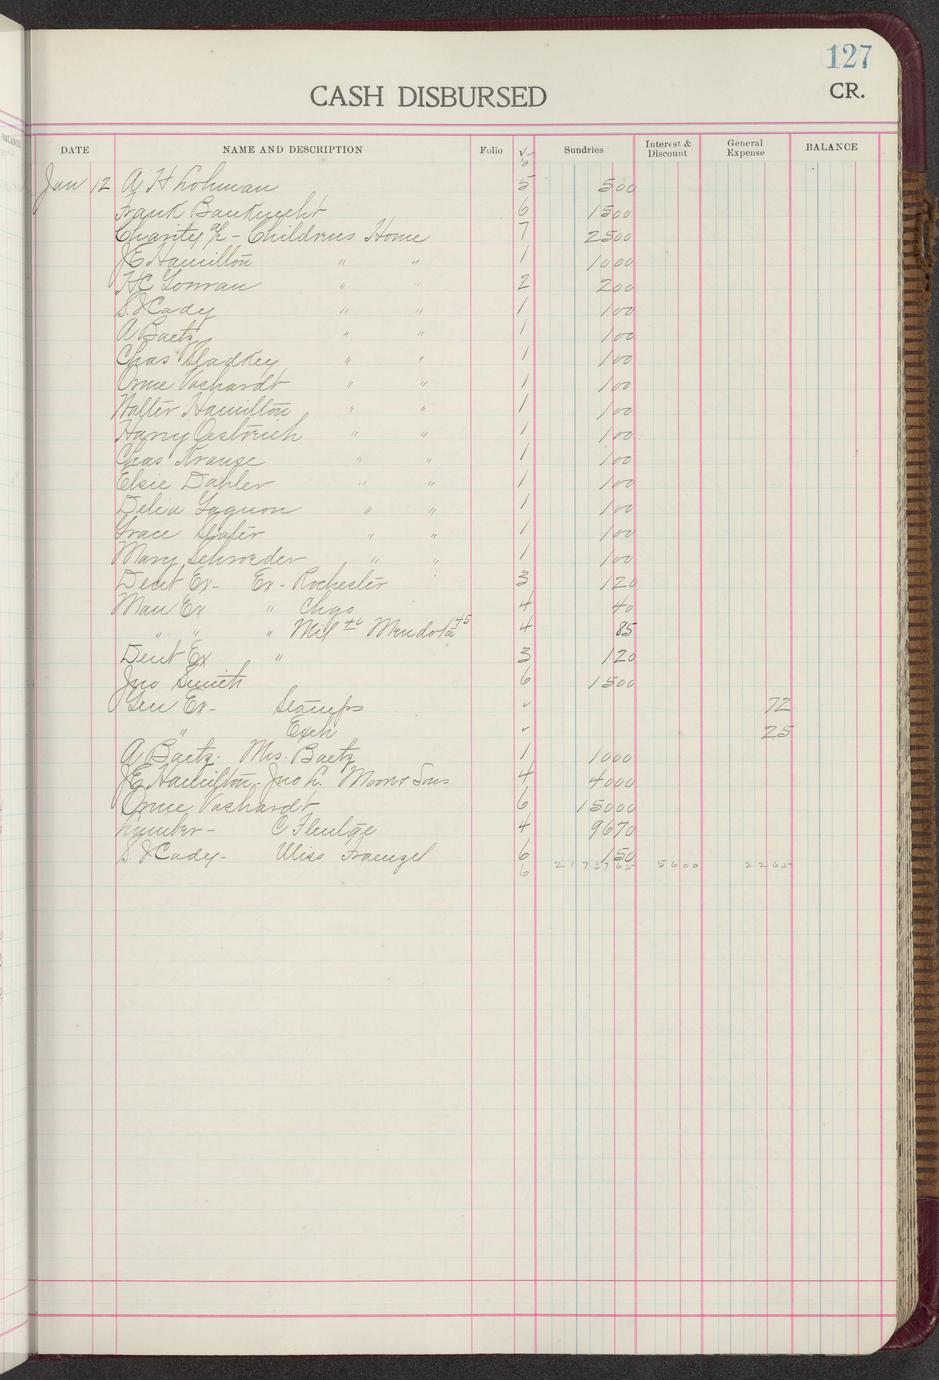 127
CASH DISBURSED
CR.
DATE NAME AND DESCRIPTION Folio √ Sundries Interest & Discount General Expense BALANCE
6
Jan 12 A H Lohman 5 500
Frank Bauknecht 6 1500
Charity a/c - Childrens Home 7 2500
J E Hamilton " " 1 1000
H C " " 2 200
S J Cady " " 1 100
A Baetz " " 1 100
Chas Sladkey " " 1 100
Orme Voshardt " " 1 100
Walter Hamilton " " 1 100
Harry Oestreich " " 1 100
Chas Krause " " 1 100
Elsie Dahler " " 1 100
Delia Gagnon " " 1 100
Grace Slater " " 1 100
Mary Schroeder " " 1 100
Ex - Ex - Rochester 3 120
Man Ex " Chgo 4 40
" " " Mil 40 Mendota 45 4 85
Ex " 3 120
Jno Smith 6 1500
Gen Ex - Stamps √ 72
" Exch √ 25
A Baetz - Mrs. Baetz 1 1000
J E Hamilton - Jno L. Moore Sons 4 4000
Orme Voshardt 6 15000
Lumber - C 4 9670
S J Cady - Miss Fraenzel 6 150
6 2173765 5600 2265